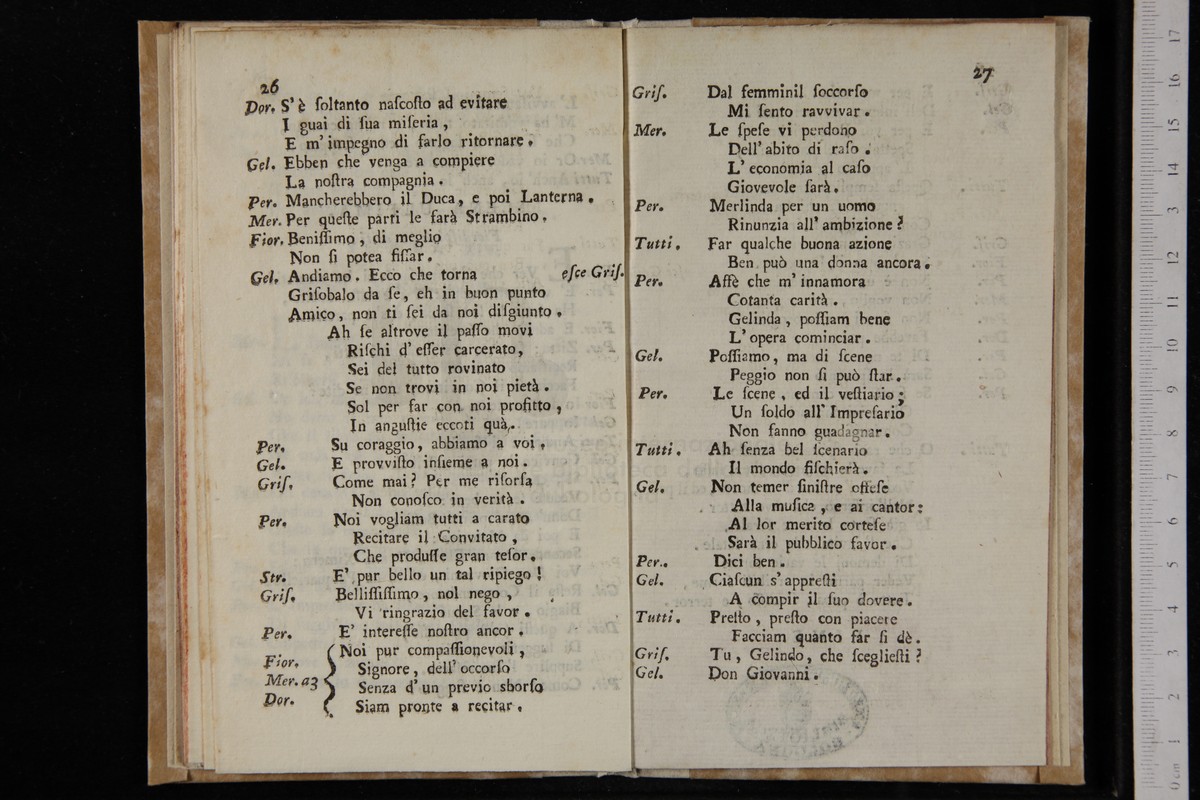 26
Dor. S' è ſoltanto naſcoſto ad evitare
I guai di ſua miſeria ,
E m' impegno di farlo ritornare.
Gel. Ebben che venga a compiere
La noſtra compagnia .
Per. Mancherebbero il Duca, e poi Lanterna .
Mer. Per queſte parti le farà Strambino.
Fior. Beniſſimo , di meglio
Non ſi potea fiſſar.
Gel. Andiamo. Ecco che torna eſce Griſ.
Griſobalo da ſe, eh in buon punto
Amico, non ti ſei da noi diſgiunto .
Ah ſe altrove il paſſo movi
Riſchi d' eſſer carcerato,
Sei del tutto rovinato
Se non trovi in noi pietà .
Sol per far con noi profitto ,
In anguſtie eccoti quà.
Per. Su coraggio, abbiamo a voi ,
Gel. E provviſto inſieme a noi .
Griſ. Come mai? Per me riſorſa
Non conoſco in verità .
Per. Noi vogliam tutti a carato
Recitare il Convitato ,
Che produſſe gran teſor.
Str. E' pur bello un tal ripiego !
Griſ. Belliſſiſſimo , nol nego ,
Vi ringrazio del favor .
Per. E' intereſſe noſtro ancor .
Fior. Mer. Dor. a3 Noi pur compaſſionevoli ,
Signore , dell' occorſo
Senza d' un previo sborſo
Siam pronte a recitar .
27
Griſ. Dal femminil ſoccorſo
Mi ſento ravvivar .
Mer. Le ſpeſe vi perdono
Dell' abito di raſo .
L' economia al caſo
Giovevole ſarà.
Per. Merlinda per un uomo
Rinunzia all' ambizione ?
Tutti. Far qualche buona azione
Ben può una donna ancora.
Per. Affè che m' innamora
Cotanta carità .
Gelinda , poſſiam bene
L' opera cominciar .
Gel. Poſſiamo, ma di ſcene
Peggio non ſi può ſtar.
Per. Le ſcene , ed il veſtiario ;
Un ſoldo all' Impreſario
Non fanno guadagnar.
Tutti. Ah ſenza bel ſcenario
Il mondo fiſchierà.
Gel. Non temer ſiniſtre offeſe
Alla muſica , e ai cantor :
Al lor merito corteſe
Sarà il pubblico favor .
Per. Dici ben .
Gel. Ciaſcun s' appreſti
A compir il ſuo dovere .
Tutti. Preſto , preſto con piacere
Facciam quanto far ſi dè.
Griſ. Tu , Gelindo, che ſceglieſti ?
Gel. Don Giovanni .